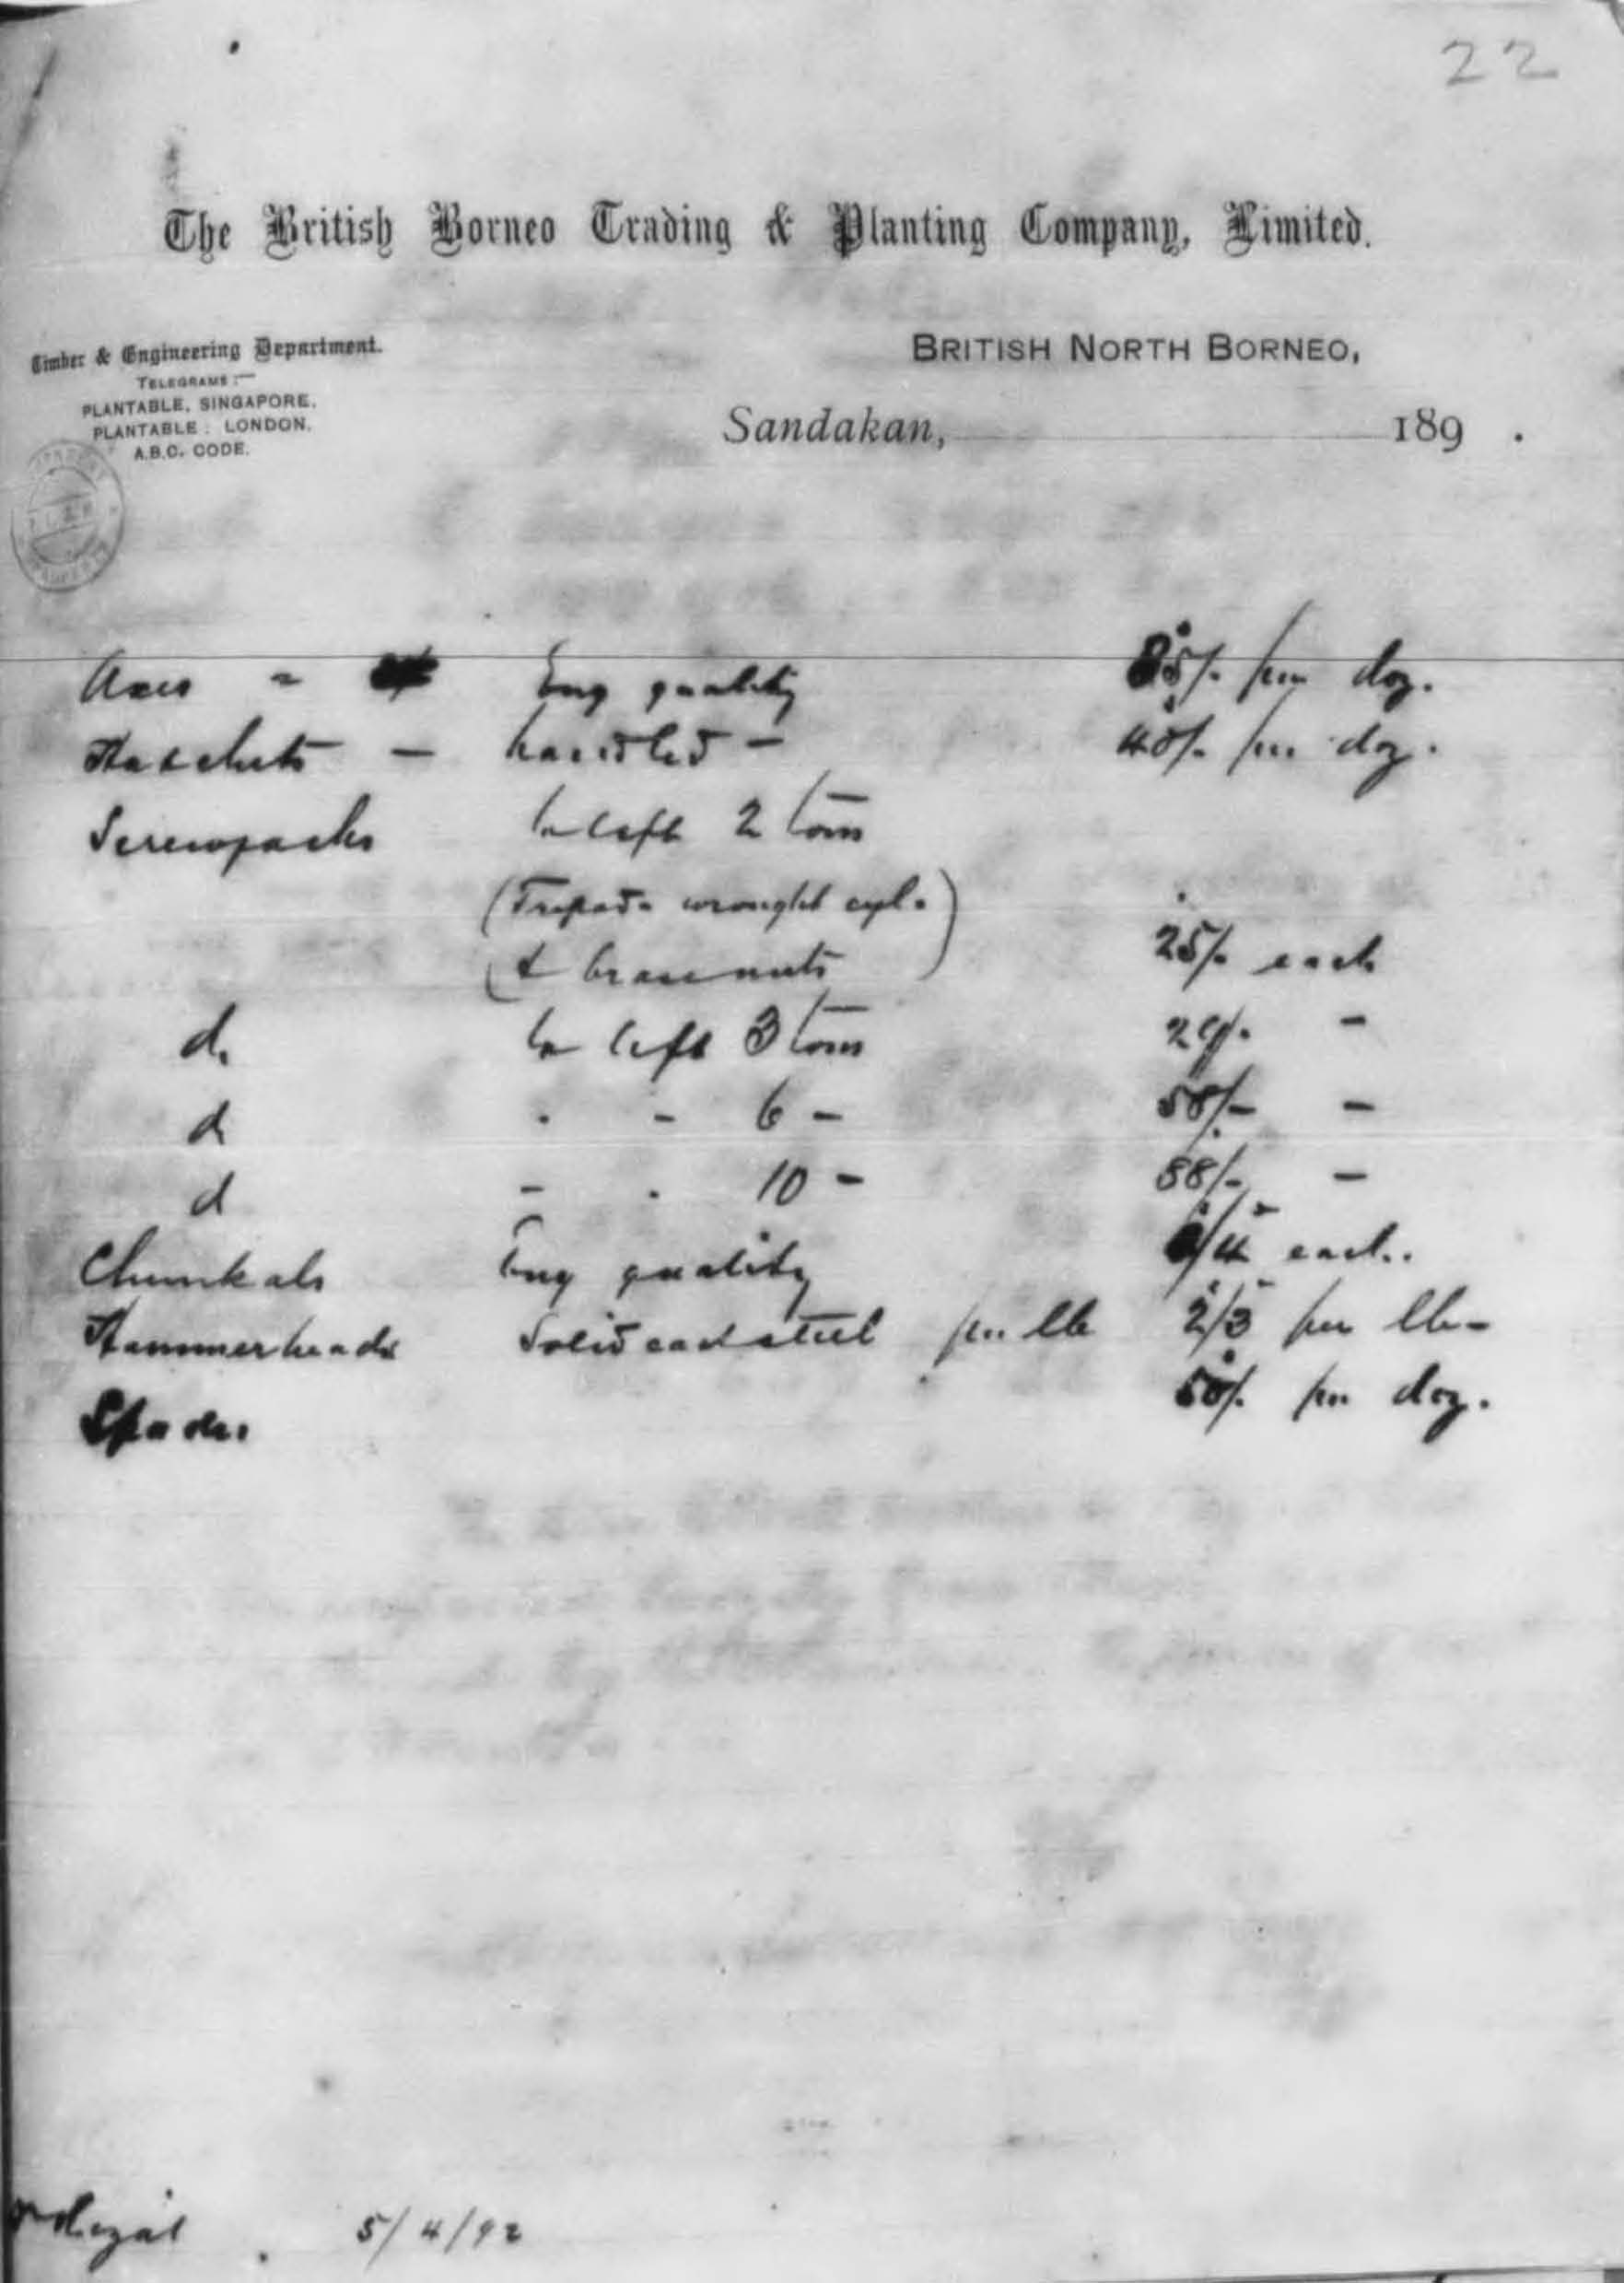 22
The British Borneo Trading & Planting Company, Limited.
Timber & Engineering Department.
TELEGRAMS:—
PLANTABLE, SINGAPORE.
PLANTABLE: LONDON.
A.B.C. CODE.
BRITISH NORTH BORNEO,
Sandakan, 189 .
Axes - Eng quality 85/- per doz.
Hatchets — handled — 40/- per doz.
Screwjacks to lift 2 tons
(Tripod. wrought cyl.)
(& brass nuts) 25/- each
do to lift 3 tons 29/- -
do . - 6 - 58/- -
do - . 10 - 88/- -
Chunkals Eng quality /4 each.
Hammerheads Solid cast steel per lb 2/3 per lb-
Spades 50/- per doz.
5/4/92